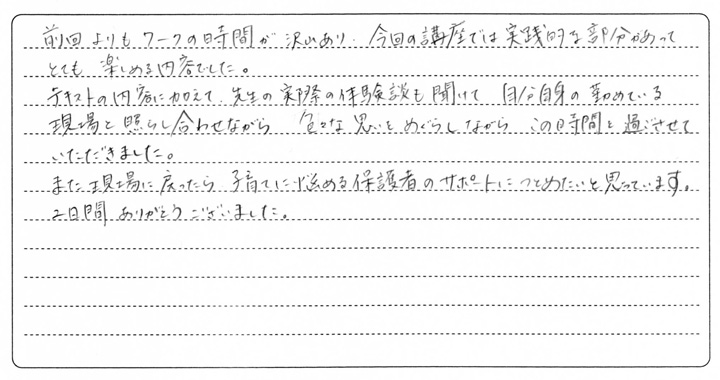 前回よりもワークの時間が沢山あり、今回の講座では実践的な部分があって
とても楽しめる内容でした。
テキストの内容に加えて、先生の実際の体験談も聞けて 自分自身の勤めている
現場と照らし合わせながら 色々な思いをめぐらしながら この時間を過ごさせて
いただきました。
また現場に戻ったら 子育てに悩める保護者のサポートにつとめたいと思っています。
2日間 ありがとうございました。